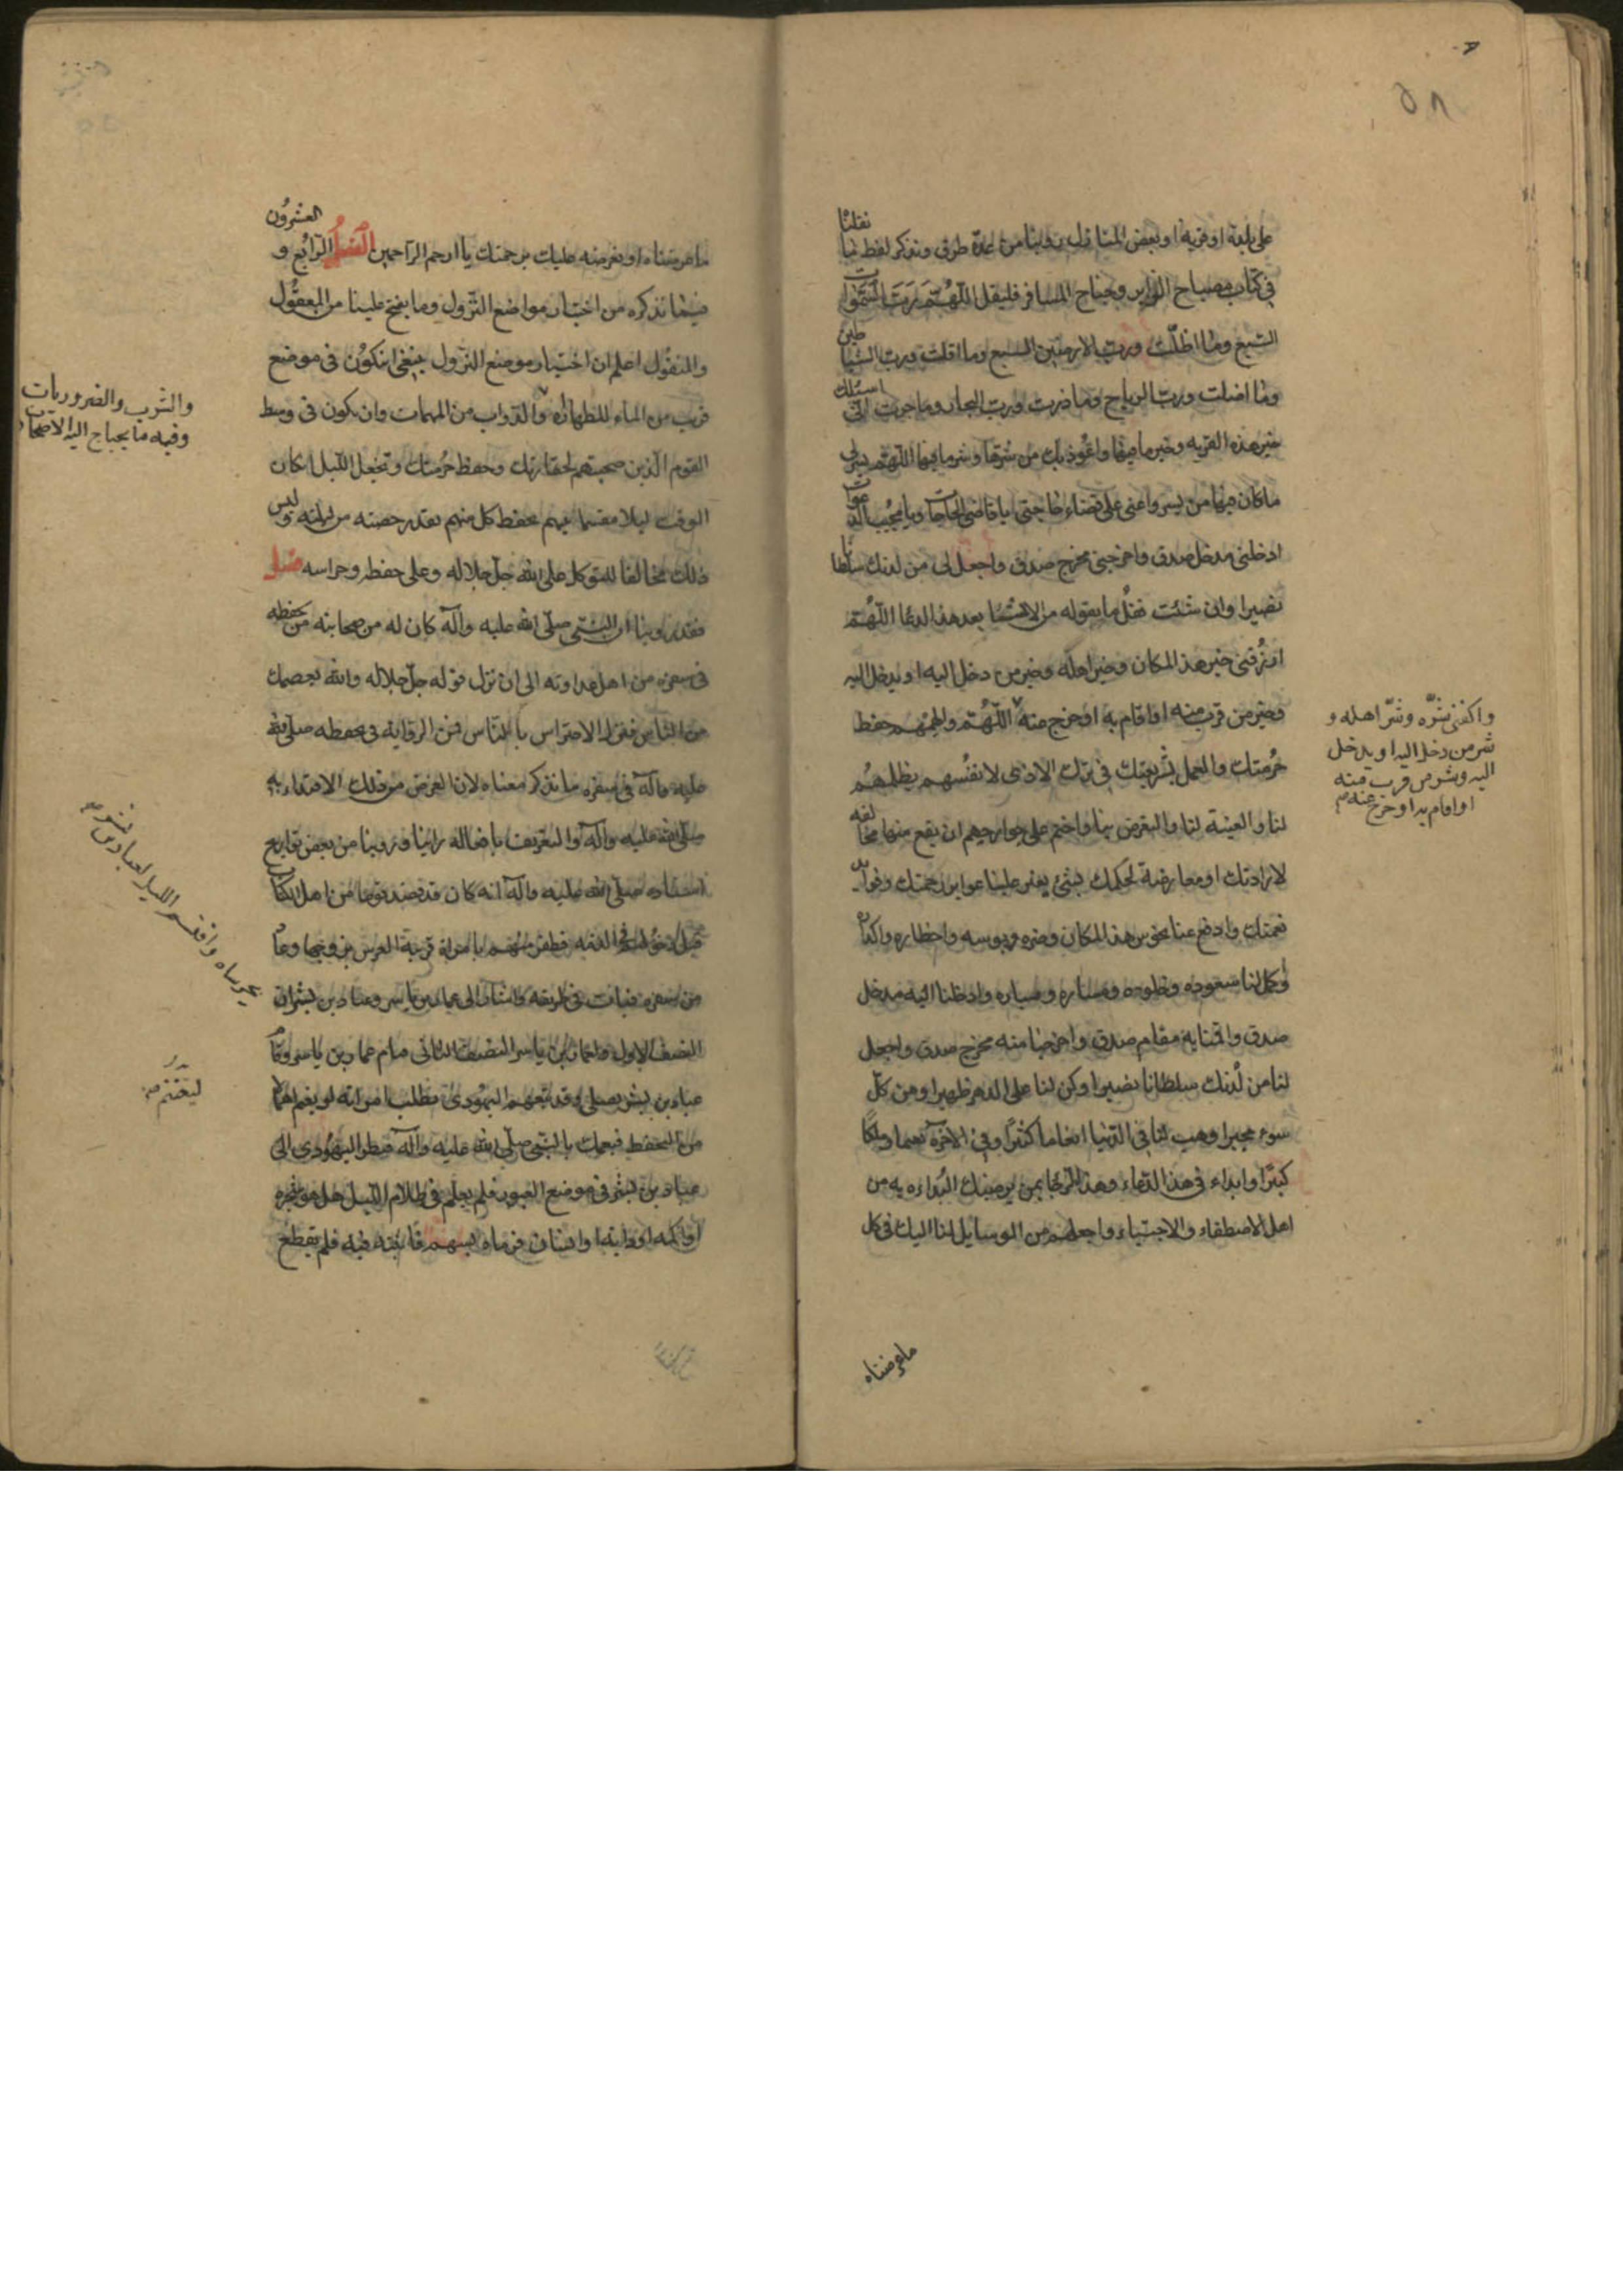 ٥٨
على بلغة او قرية او بعض المنازل روينا من عدة طرق ونذكر لفظ ما نقلنا
في كتاب مصباح الزاير وجناح المسافر فليقل اللهم رب السموات
السبع وما اظلت ورب الارضين السبع وما اقلت ورب الشياطين
وما اضلت ورب الرياح وما ذرت ورب البحار وما جرت انى اسئلك
خير هذه القريه وخير ما فيها واعوذ بك من شرها وشر ما فيها اللهم يسر لى
ما كان فيها من يسر واعنى على قضاء حاجتى يا قاضى الحاجات ويا مجيب الدعوات
ادخلنى مدخل صدق واخرجنى مخرج صدق واجعل لى من لدنك سلطانا
نصيرا وان شئت فقل ما نقوله من الانشاء بعد هذا الدعا اللهم
ارزقنى خير هذا المكان وخير اهله وخير من دخل اليه او يدخل اليه
وخير من قرب منه او اقام به او خرج منه اللهم والهمهم حفظ
حرمتك والعمل بشريعتك في ترك الاذى لانفسهم بظلمهم
لنا والغيبة لنا والتعرض بنا واختم على جوارحهم ان يقع منها مخالفة
لارادتك او معارضة لحكمك بشئ يغير علينا عوايد رحمتك وفوايد
نعمتك وادفع عنا نحوس هذا المكان وضره وبوسه واخطاره واكداره
وكمل لنا سعوده وخلوده ومساره ومباره وادخلنا اليه مدخل
صدق واقمنا به مقام صدق واخرجنا منه مخرج صدق واجعل
لنا من لدنك سلطانا نصيرا وكن لنا على الدهر ظهيرا ومن كل
سوء مجيرا وهب لنا فى الدنيا انعاما كثيرا وفى الاخرة نعيما وملكا
كبيرا وابداء فى هذا الدعاء وهذا الرجا بمن يرضيك البداءه به من
اهل الاصطفاء والاجتباء واجعلهم من الوسايل لنا اليك فى كل
ماعرضناه
واكفنى شره وشر اهله و
شر من دخل اليه او يدخل
اليه وشر من قرب منه
او اقام به او خرج عنه
ماعرضناه او نعرضه عليك برحمتك يا ارحم الراحمين الفصل الرابع و العشرون
فيما نذكره من اختيار مواضع النزول وما يفتح علينا من المعقول
والمنقول اعلم ان اختيار موضع النزول ينبغى ان يكون فى موضع
قريب من الماء للطهارة والدواب من المهمات وان يكون فى وسط
القوم الذين صحبتهم لخفارتك وحفظ حرمتك وتجعل الليل ان كان
الوقت ليلا مقسما بينهم يحفظ كل منهم بقدر حصته من ليلته وليس
ذلك مخالفا للتوكل على الله جل جلاله وعلى حفظه وحراسه فصل
فقد روينا ان النبى صلى الله عليه وآله كان له من صحابته من يحفظه
فى سفره من اهل عداوته الى ان نزل قوله جل جلاله والله يعصمك
من الناس فترك الاحتراس بالناس فمن الرواية فى تحفظه صلى الله
عليه وآله فى سفره ما نذكر معناه لان الغرض من ذلك الاقتداء به
صلى الله عليه وآله والتعريف بافعاله راينا وروينا من بعض تواريخ
اسفاره صلى الله عليه وآله انه كان قد قصد قوما من اهل الكتاب
قبل دخولهم فى الذمه فظفر منهم بامراة قريبة العرس بزوجها وعاد
من سفره فبات فى طريقه واشار الى عمار بن ياسر وعباد بن بشر ان
النصف الاول ولعمار بن ياسر النصف الثانى فنام عمار بن ياسر وقام
عباد بن بشر يصلى وقد تبعهم اليهودى يطلب امراته او يغتم اهمالا
من التحفظ فيفتك بالنبى صلى الله عليه وآله فنظر اليهودى الى
عباد بن بشر فى موضع العبور فلم يعلم فى ظلام الليل هل هو شجره
او اكمه او دابة او انسان فرماه بسهم فاثبته فيه فلم يقطع
والشرب والضروريات
وفيه ما يحتاج اليه الاصحاب
يحرساه واقتسم الليل لعباد بن بشر
ليغتنم